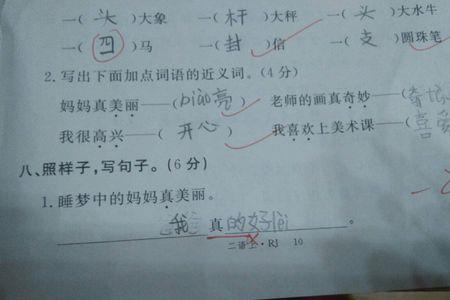 一(头)大象 一(杆)大秤 一(头)大水牛
一(四)马 一(封)信 一(支)圆珠笔
2.写出下面加点词语的近义词。(4分)
妈妈真美丽——(piào亮) 老师的画真奇妙——(奇
我很高兴——(开心) 我喜欢上美术课——(喜爱
八、照样子,写句子。(6分)
1.睡梦中的妈妈真美丽。
我 真的好
二语上·RJ 10